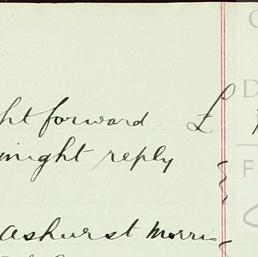 ht forward £
might reply
Ashurst Morris